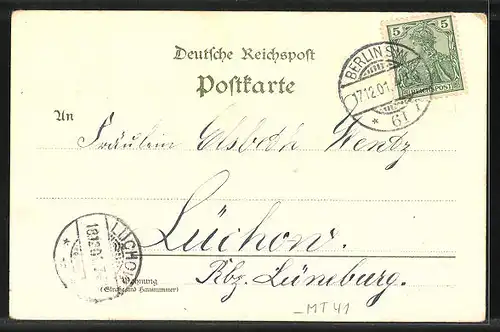 Deutsche Reichspost
Postkarte
5 5
REICHSPOST
BERLIN S.W.
17.12.01.
* 61
An
Fräulein Elsbeth Wentz
Lüchow.
Rbz. Lüneburg.
LÜCHOW
18.12.01
*
Wohnung
(Straße und Hausnummer)
MT 41